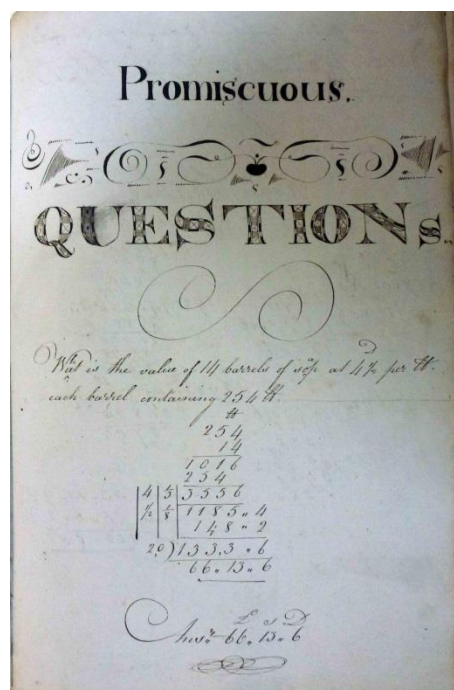 Promiscuous.
QUESTIONs.
What is the value of 14 barrels of sope at 4½ D per ℔.
each barrel containing 254 ℔.
℔
254
14
1016
254
4 | ⅓ | 3556
½ | ⅛ | 1185 „ 4
148 „ 2
20)1333 „ 6
66 „ 13 „ 6
£ s D
Answr. 66 „ 13 „ 6